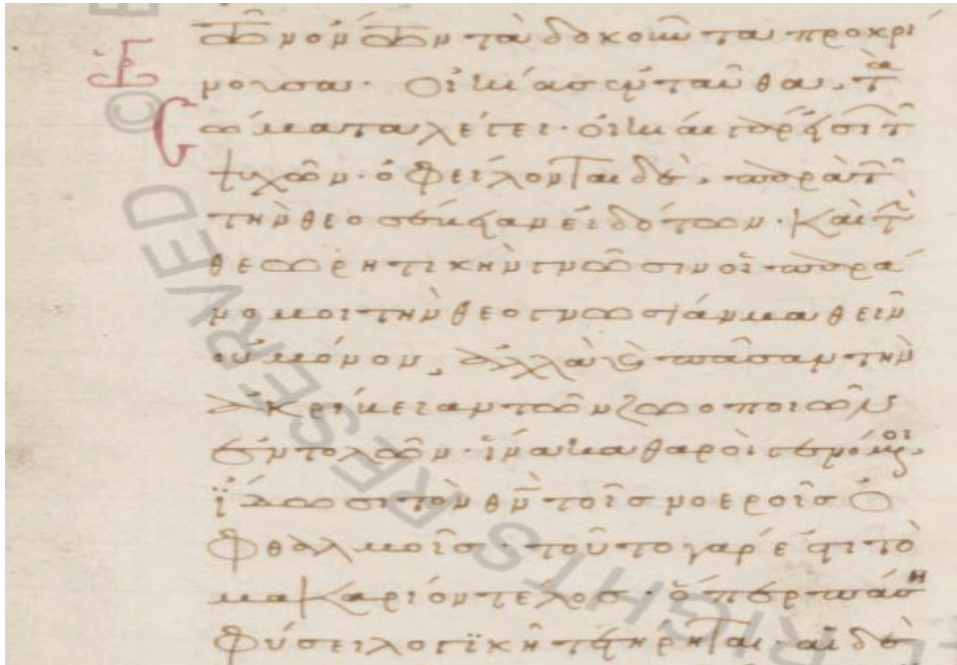 τὰ δοκοῦντα προκρί
νουσα· Οἰκίας ἐνταῦθα, τὰ
σώματα λέγει· οἰκίαι
ψυχῶν· ὀφείλονται δὲ, παρὰ τῶν
τὴν θεοσέβειαν εἰδότων· Καὶ τὴν
θεωρητικὴν γνῶσιν οἱ παρά
νομοι τὴν θεογνωσίαν μαθεῖν
οὐ μόνον, ἀλλὰ καὶ πᾶσαν τὴν
ἀκρίβειαν τῶν ζωοποιῶν
ἐντολῶν· ἵνα καθαροὶ γενόμενοι
ἴδωσι τὸν θν̄ τοῖς νοεροῖς ὀ
φθαλμοῖς τοῦτο γάρ ἐστι τὸ
μακάριον τέλος· ὅπερ πάσῃ
φύσει λογϊκῇ τετήρηται· αἱ δὲ
© RESERVED
RIGHTS